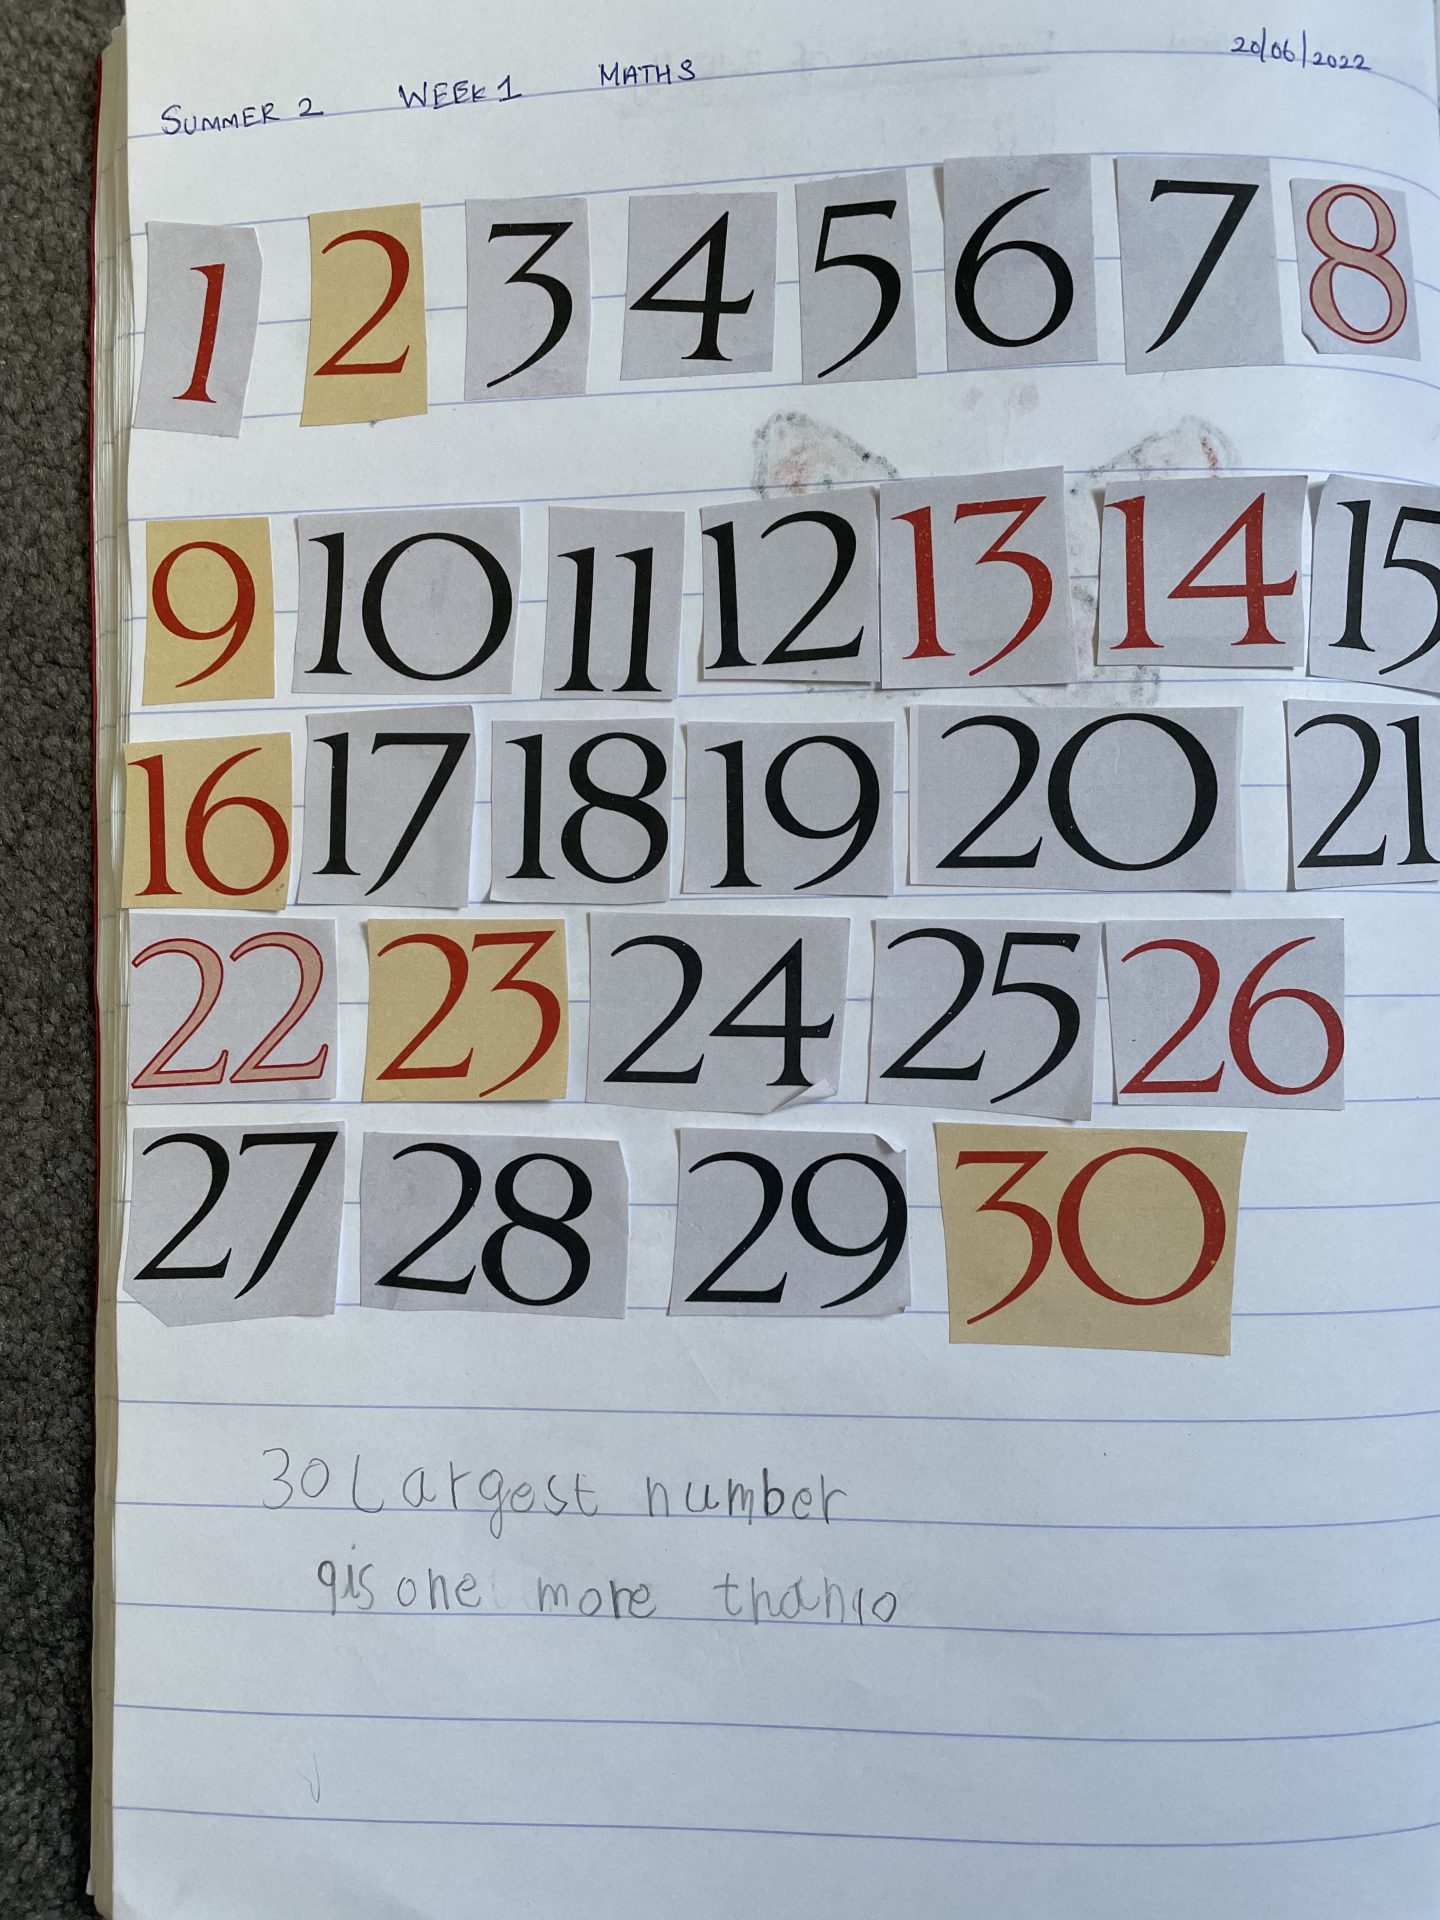 SUMMER 2 WEEK 1 MATHS 20/06/2022
1 2 3 4 5 6 7 8
9 10 11 12 13 14 15
16 17 18 19 20 21
22 23 24 25 26
27 28 29 30
30 Largest number
9is one more than 10